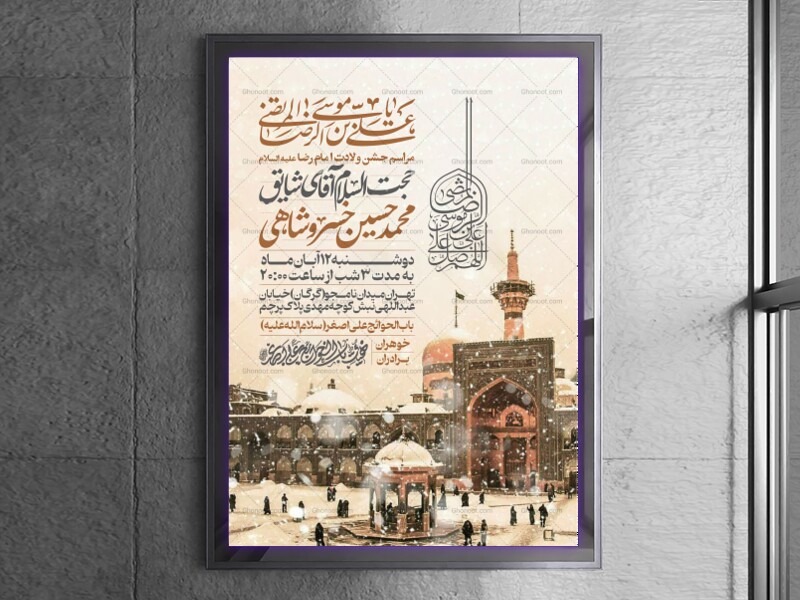 یا علی بن موسی الرضا المرتضی
مراسم جشن ولادت امام رضا علیه السلام
حجت السلام آقای شایق
محمدحسین خسروشاهی
دوشنبه ۱۲ آبان ماه
به مدت ۳ شب از ساعت ۲۰:۰۰
تهران میدان نامجو (گرگان) خیابان
عبداللهی نبش کوچه مهدی پلاک پرچم
باب الحوائج علی اصغر (سلام الله علیه)
خواهران
برادران
Ghonoot.com